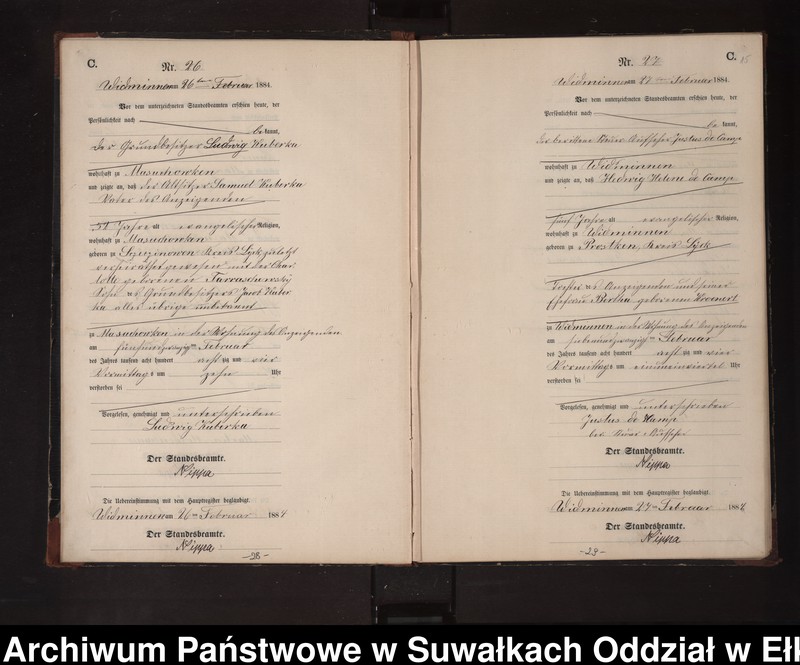 C.
Nr. 26.
Widminnen am 26ten Februar 1884.
Vor dem unterzeichneten Standesbeamten erschien heute, der
Persönlichkeit nach
be kannt,
der Grundbesitzer Ludwig Kuberka
wohnhaft zu Masuchowken
und zeigte an, daß der Altsitzer Samuel Kuberka
Vater des Anzeigenden
Jahre alt evangelischer Religion,
wohnhaft zu Masuchowken
geboren zu Kreis Lyck zuletzt
verheirathet gewesen mit der Char
lotte geborenen
Sohn des Grundbesitzers Jacob Kuber
ka alles übrige unbekannt
zu Masuchowken in der Wohnung des Anzeigenden
am fünfundzwanzigten Februar
des Jahres tausend acht hundert acht zig und vier
Vormittags um zehn Uhr
verstorben sei
Vorgelesen, genehmigt und unterschrieben
Ludwig Kuberka
Der Standesbeamte.
Nippa
Die Uebereinstimmung mit dem Hauptregister beglaubigt.
Widminnen am 26ten Februar 1884
Der Standesbeamte.
Nippa
-28-
C.
Nr. 27
Widminnen am 27ten Februar 1884.
Vor dem unterzeichneten Standesbeamten erschien heute, der
Persönlichkeit nach
be kannt,
der berittene Steuer Aufseher Justus de Camp
wohnhaft zu Widminnen
und zeigte an, daß Hedwig Helene de Camp
fünf Jahre alt evangelischer Religion,
wohnhaft zu Widminnen
geboren zu Prostken, Kreis Lyck
Tochter des Anzeigenden und seiner
Ehefrau Bertha geborenen
zu Widminnen in der Wohnung des Anzeigenden
am siebenundzwanzigten Februar
des Jahres tausend acht hundert acht zig und vier
Vormittags um einundeinviertel Uhr
verstorben sei
Vorgelesen, genehmigt und unterschrieben
Justus de Kamp
ber. Steuer-Aufseher
Der Standesbeamte.
Nippa
Die Uebereinstimmung mit dem Hauptregister beglaubigt.
Widminnen am 27ten Februar 1884
Der Standesbeamte.
Nippa
-29-
Archiwum Państwowe w Suwałkach Oddział w Ełk